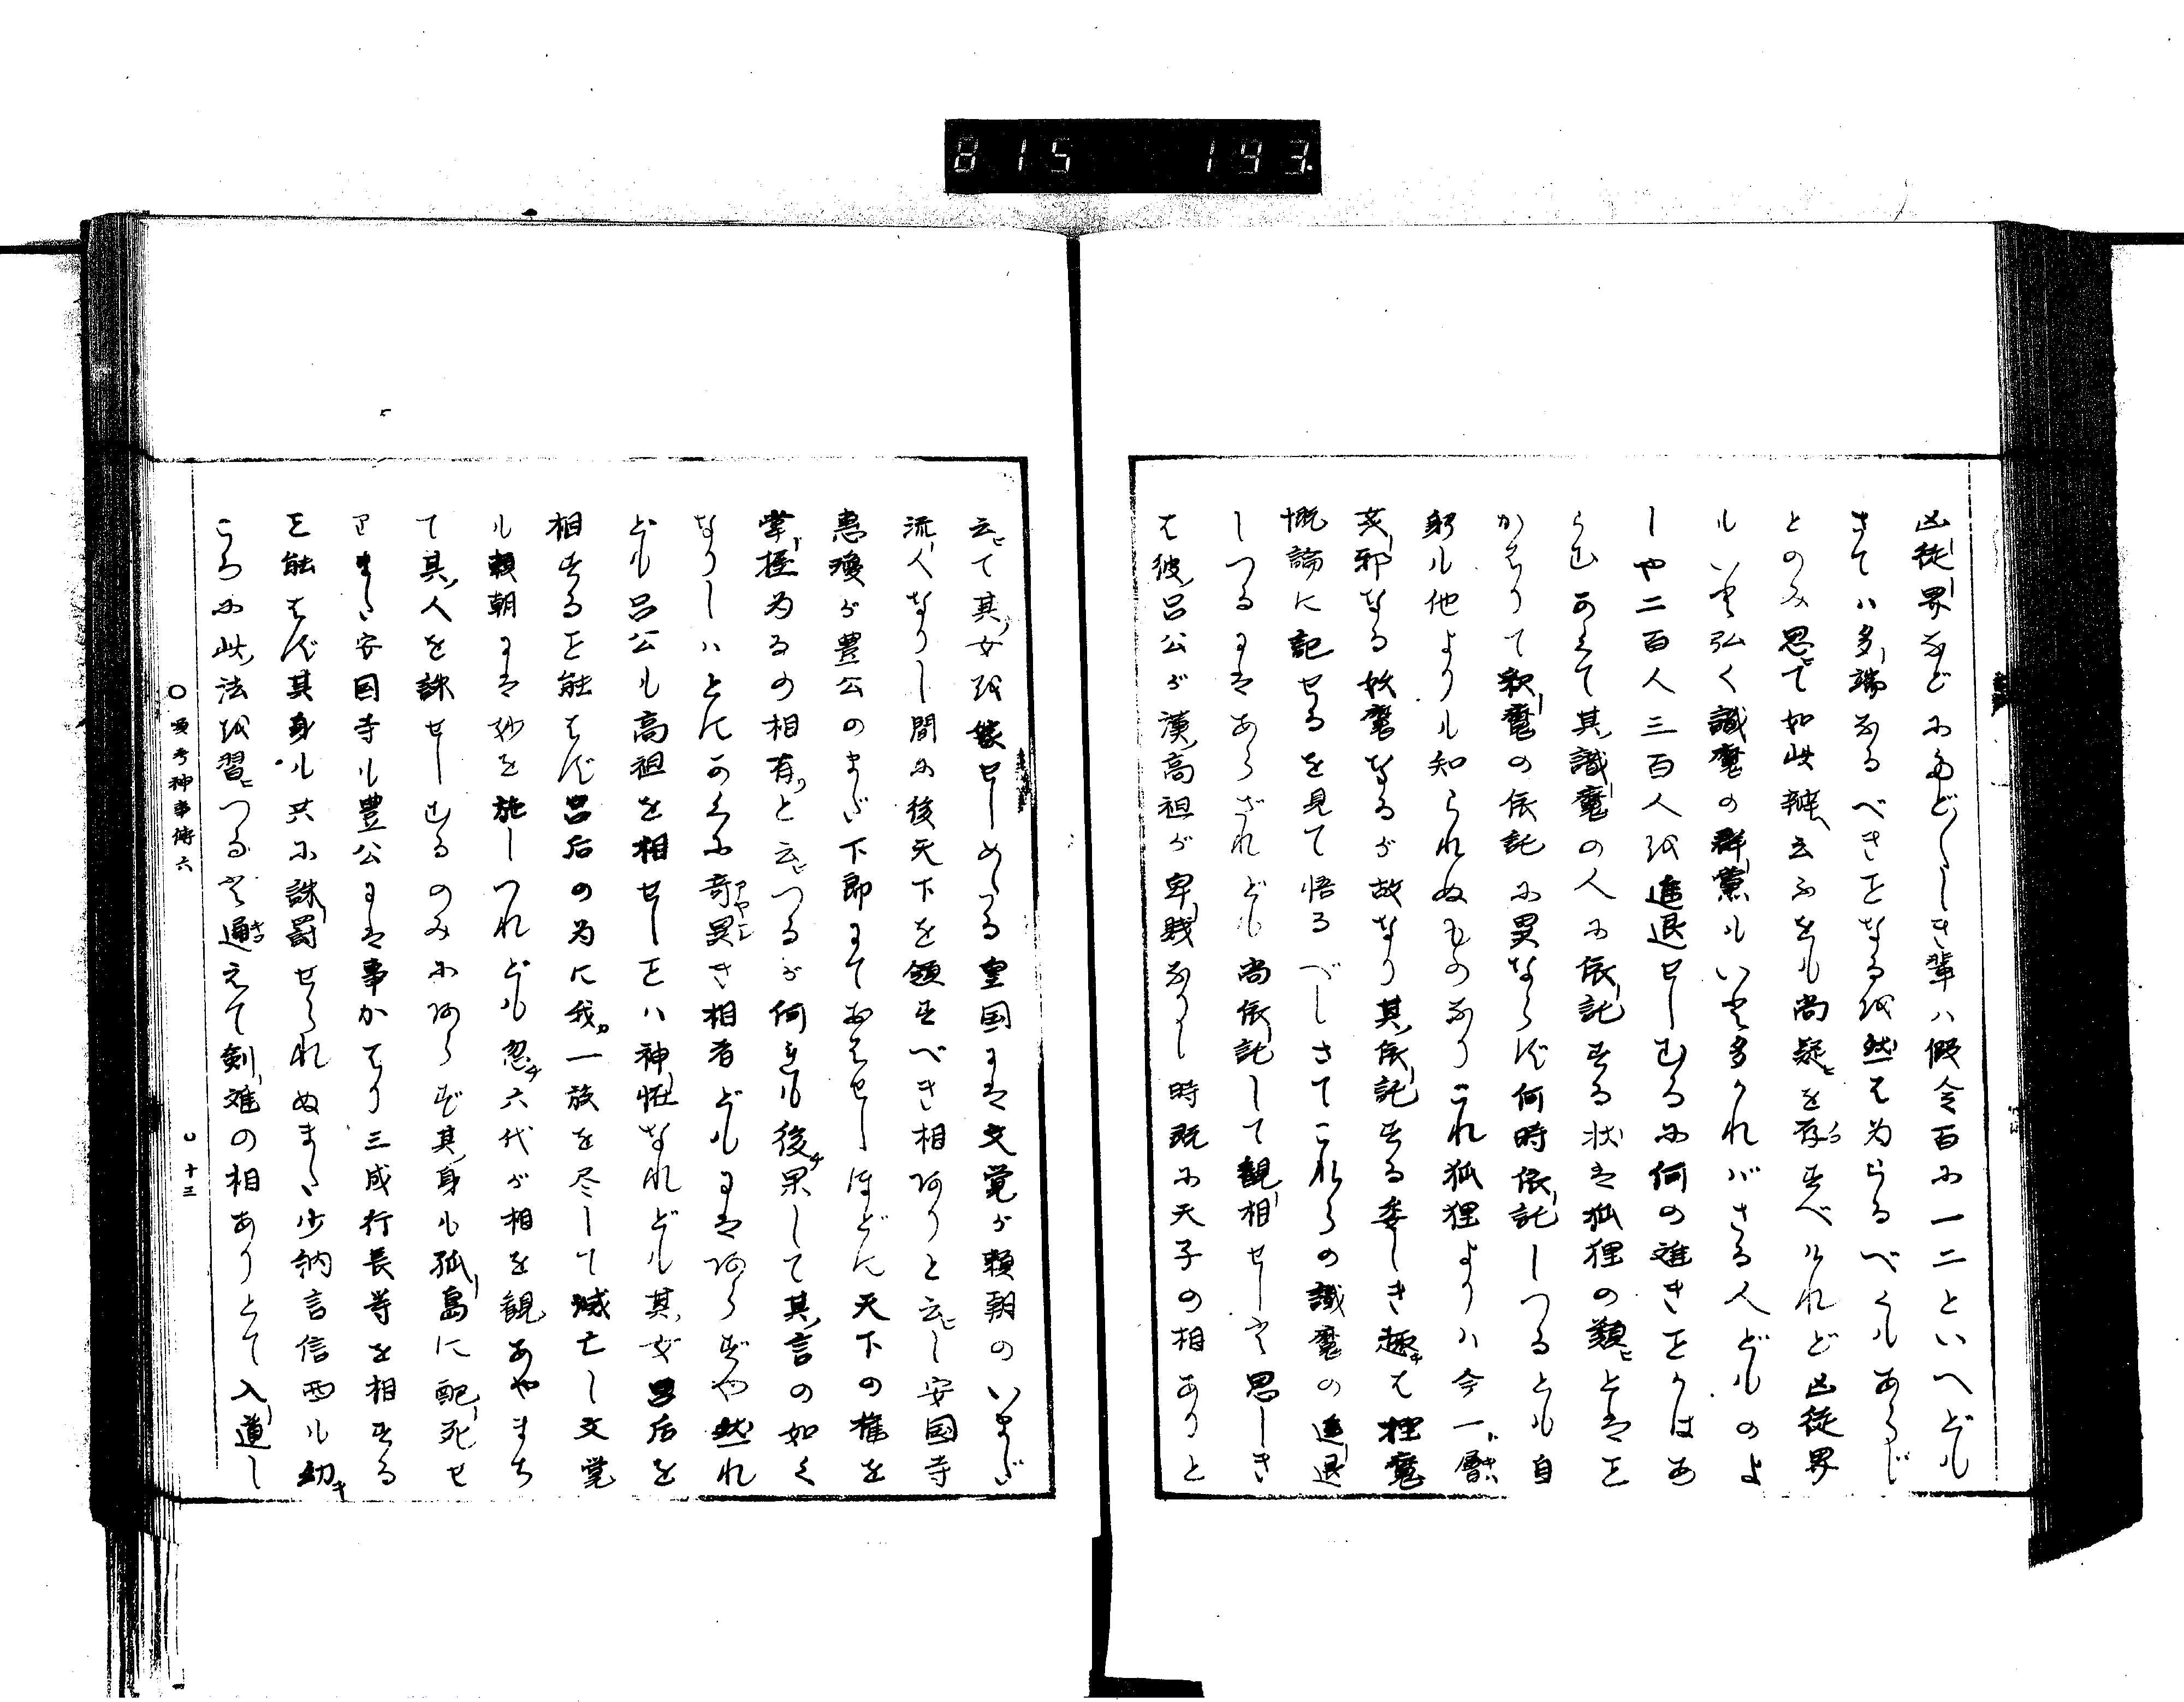 815 193.
凶徒界などにたどたどしき輩ハ假令百に一二といへども
さてハ多端なるべきことなる を然は為らるべくもあらじ
とのみ思ひて如此辨云ふをも尚疑を存すべけれど凶徒界
もいと弘く識魔の群黨もいと多かればさる人どものよ
しや二百人三百人を進退せしむるに何の難きことかはあ
らむかくて其識魔の人に依託する状は狐狸の類とはこと
かはりて釈魔の依託に異ならず何時依託しつるとも自
躬も他よりも知られぬものなりこれ狐狸よりハ今一層
亥邪なる妖魔なるが故なり其依託する委しき趣は狸魔
慨論に記せるを見て悟るべしさてこれらの識魔の進退
しつるにはあらざれども尚依託して観相せしと思しき
は彼呂公が漢高祖が卑賎なりし時既に天子の相ありと
云て其女を嫁せしめたる皇国には文覚が頼朝のいまだ
流人なりし間に後天下を領すべき相ありと云し安国寺
惠瓊が豊公のまだ下郎にておはせしほどに天下の権を
掌握為るの相有と云つるが何れも後果して其言の如く
なりしハとにかくに奇異き相者どもにはあらずや然れ
ども呂公も高祖を相せしことハ神怪なれども其女呂后を
相することを能はず呂后の為に我一族を尽して滅亡し文覚
も頼朝には妙を施しつれども忽六代が相を観あやまち
て其人を誅せしむるのみにあらず其身も孤島に配死せ
りまた安国寺も豊公には事かはり三成行長等を相する
こと能はず其身も共に誅罰せられぬまた少納言信西も幼き
ころに此法を習つると通えて剣難の相ありとて入道し
〇 考神事傳六 〇十三